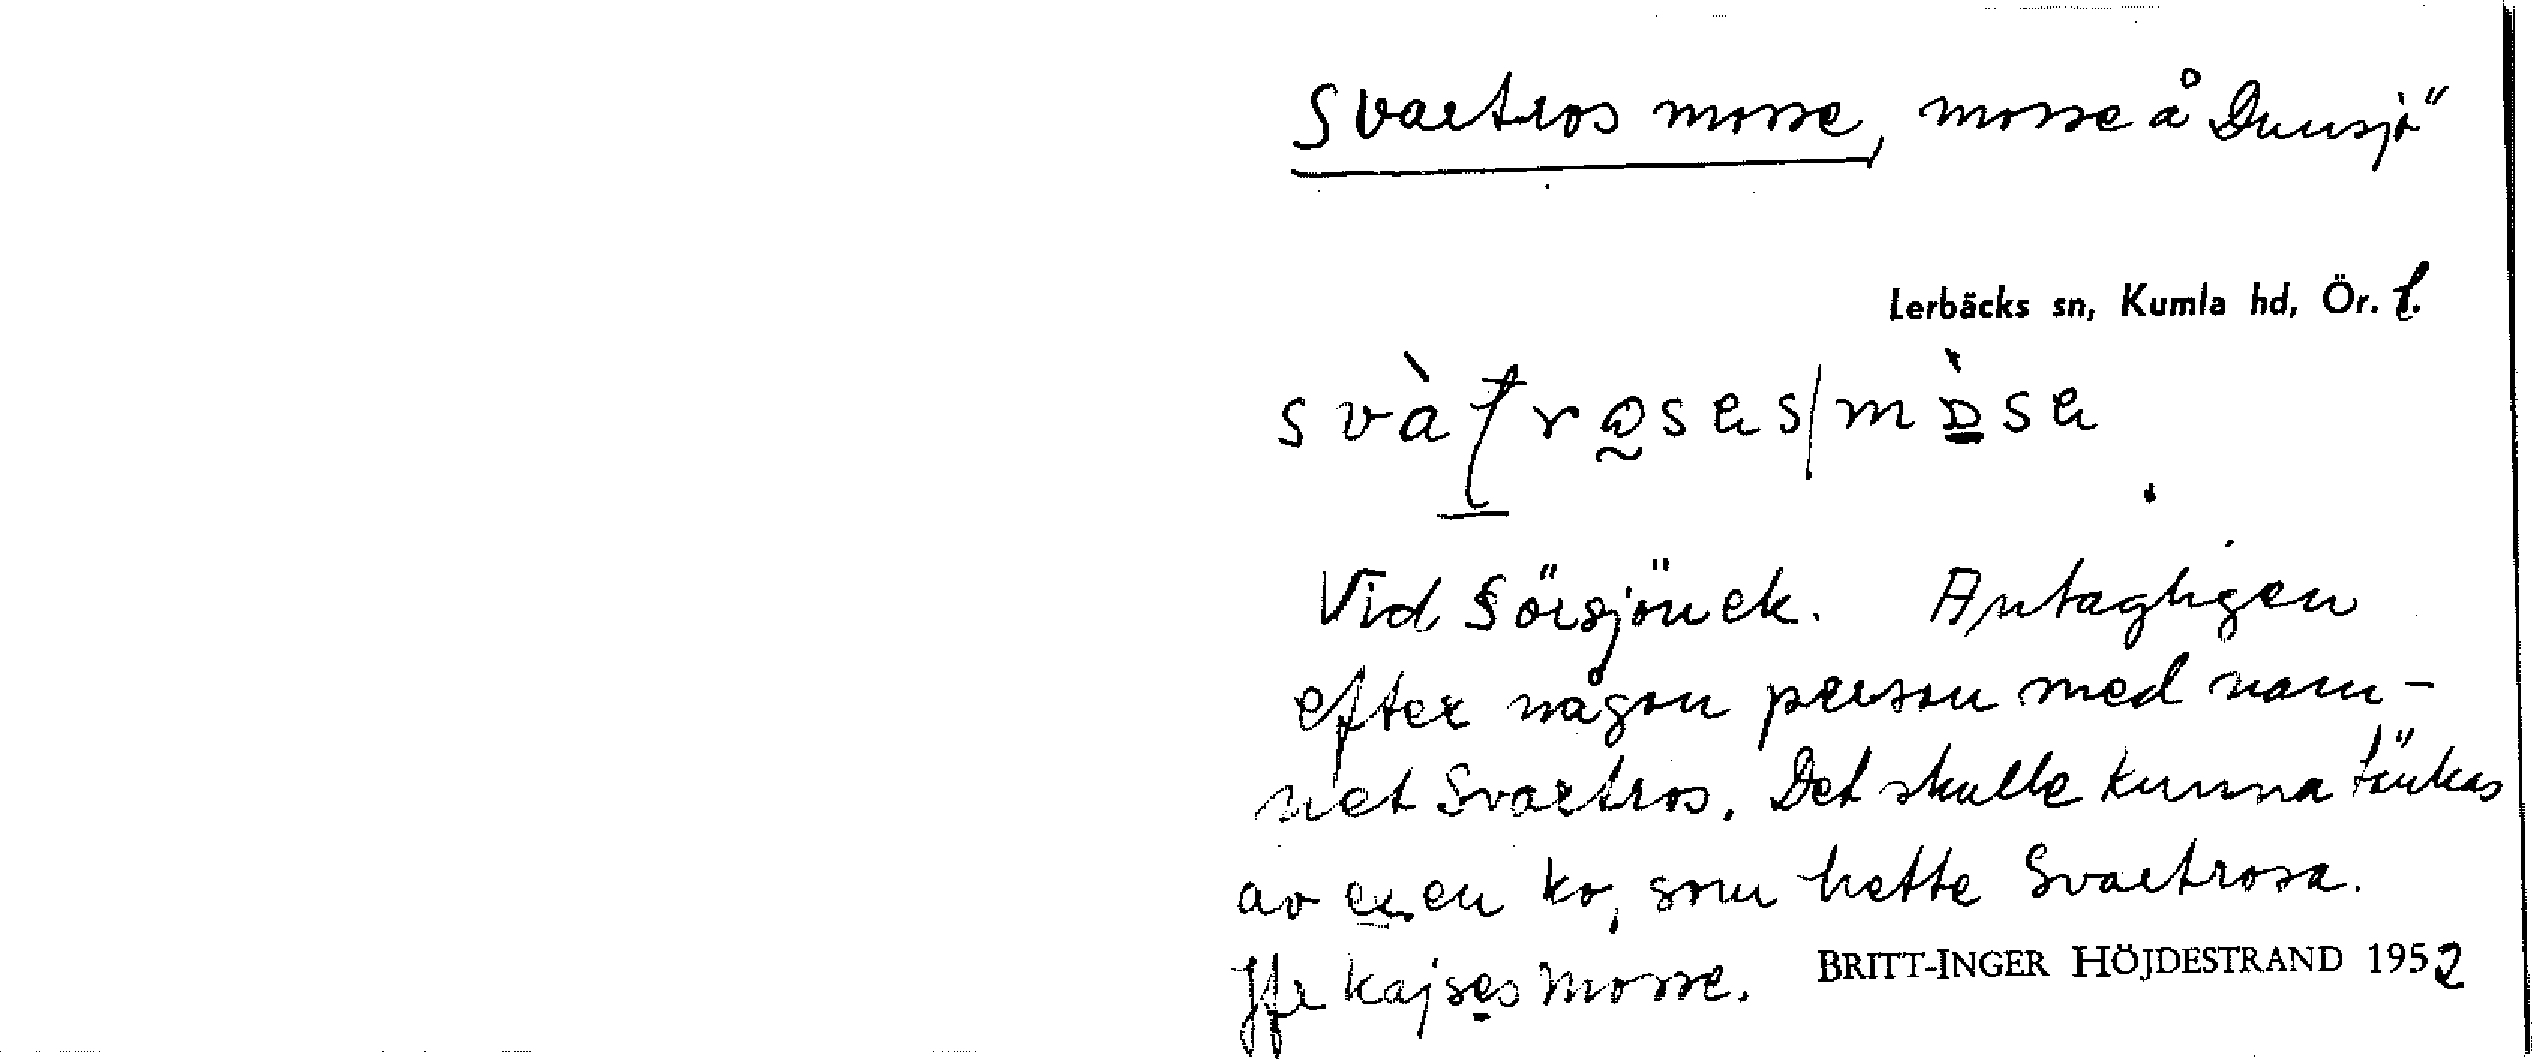 Svartros mosse, mosse å Dunsjö
Lerbäcks sn, Kumla hd, Ör. l.
Vid Sörsjön ek. Antagligen
efter någon person med nam-
net Svartros. Det skulle kunna tänkas
av en en ko, som hette Svartrosa.
Jfr Kajses mosse. BRITT-INGER HÖJDESTRAND 1952